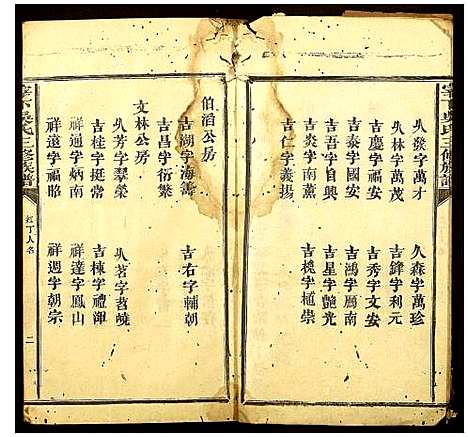 宰下吳氏三修族譜
久發字萬才
久森字萬珍
久林字萬茂
吉鋒字利元
吉慶字福安
吉秀字文安
吉泰字國安
吉鴻字雁南
吉吾字自興
吉星字艷光
吉炎字南薰
吉槐字植崇
吉仁字義揚
伯滔公房
吉湖字海濤
吉右字輔朝
吉昌字衍繁
文林公房
久芳字翠榮
久茗字哲曉
吉桂字挺常
吉棟字禮渾
祥通字炳南
祥達字鳳山
祥遠字福昭
祥週字朝宗
宰下吳氏三修族譜
紅丁人名
二